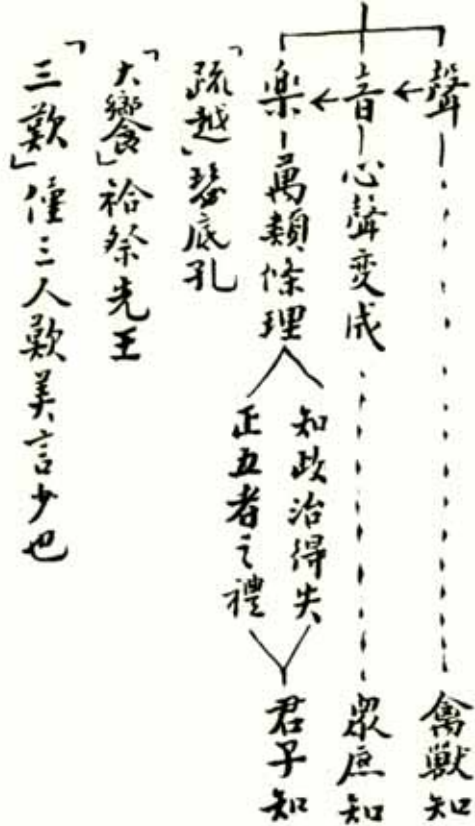 聲 禽獸知
音 心聲变成 眾庶知
樂 萬類條理 知政治得失 正五者之禮 君子知
「疏越」瑟底孔
「大饗」祫祭先王
「三歎」僅三人歎美言少也